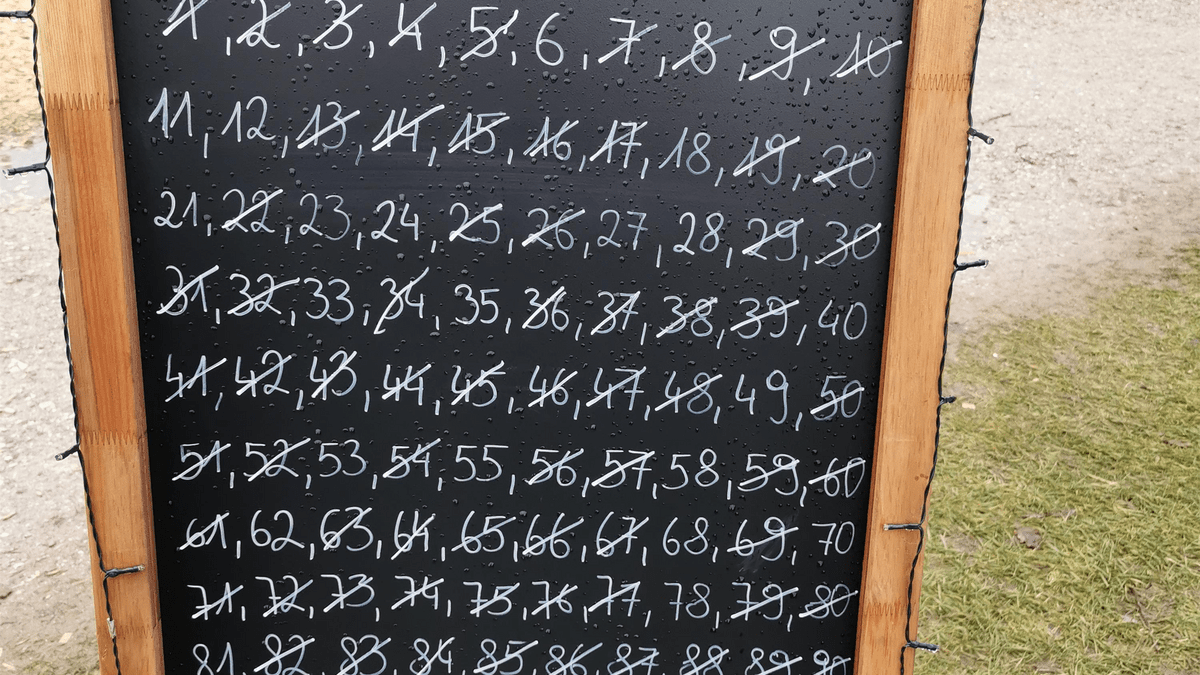 1, 2, 3, 4, 5, 6, 7, 8, 9, 10
11, 12, 13, 14, 15, 16, 17, 18, 19, 20
21, 22, 23, 24, 25, 26, 27, 28, 29, 30
31, 32, 33, 34, 35, 36, 37, 38, 39, 40
41, 42, 43, 44, 45, 46, 47, 48, 49, 50
51, 52, 53, 54, 55, 56, 57, 58, 59, 60
61, 62, 63, 64, 65, 66, 67, 68, 69, 70
71, 72, 73, 74, 75, 76, 77, 78, 79, 80
81, 82, 83, 84, 85, 86, 87, 88, 89, 90